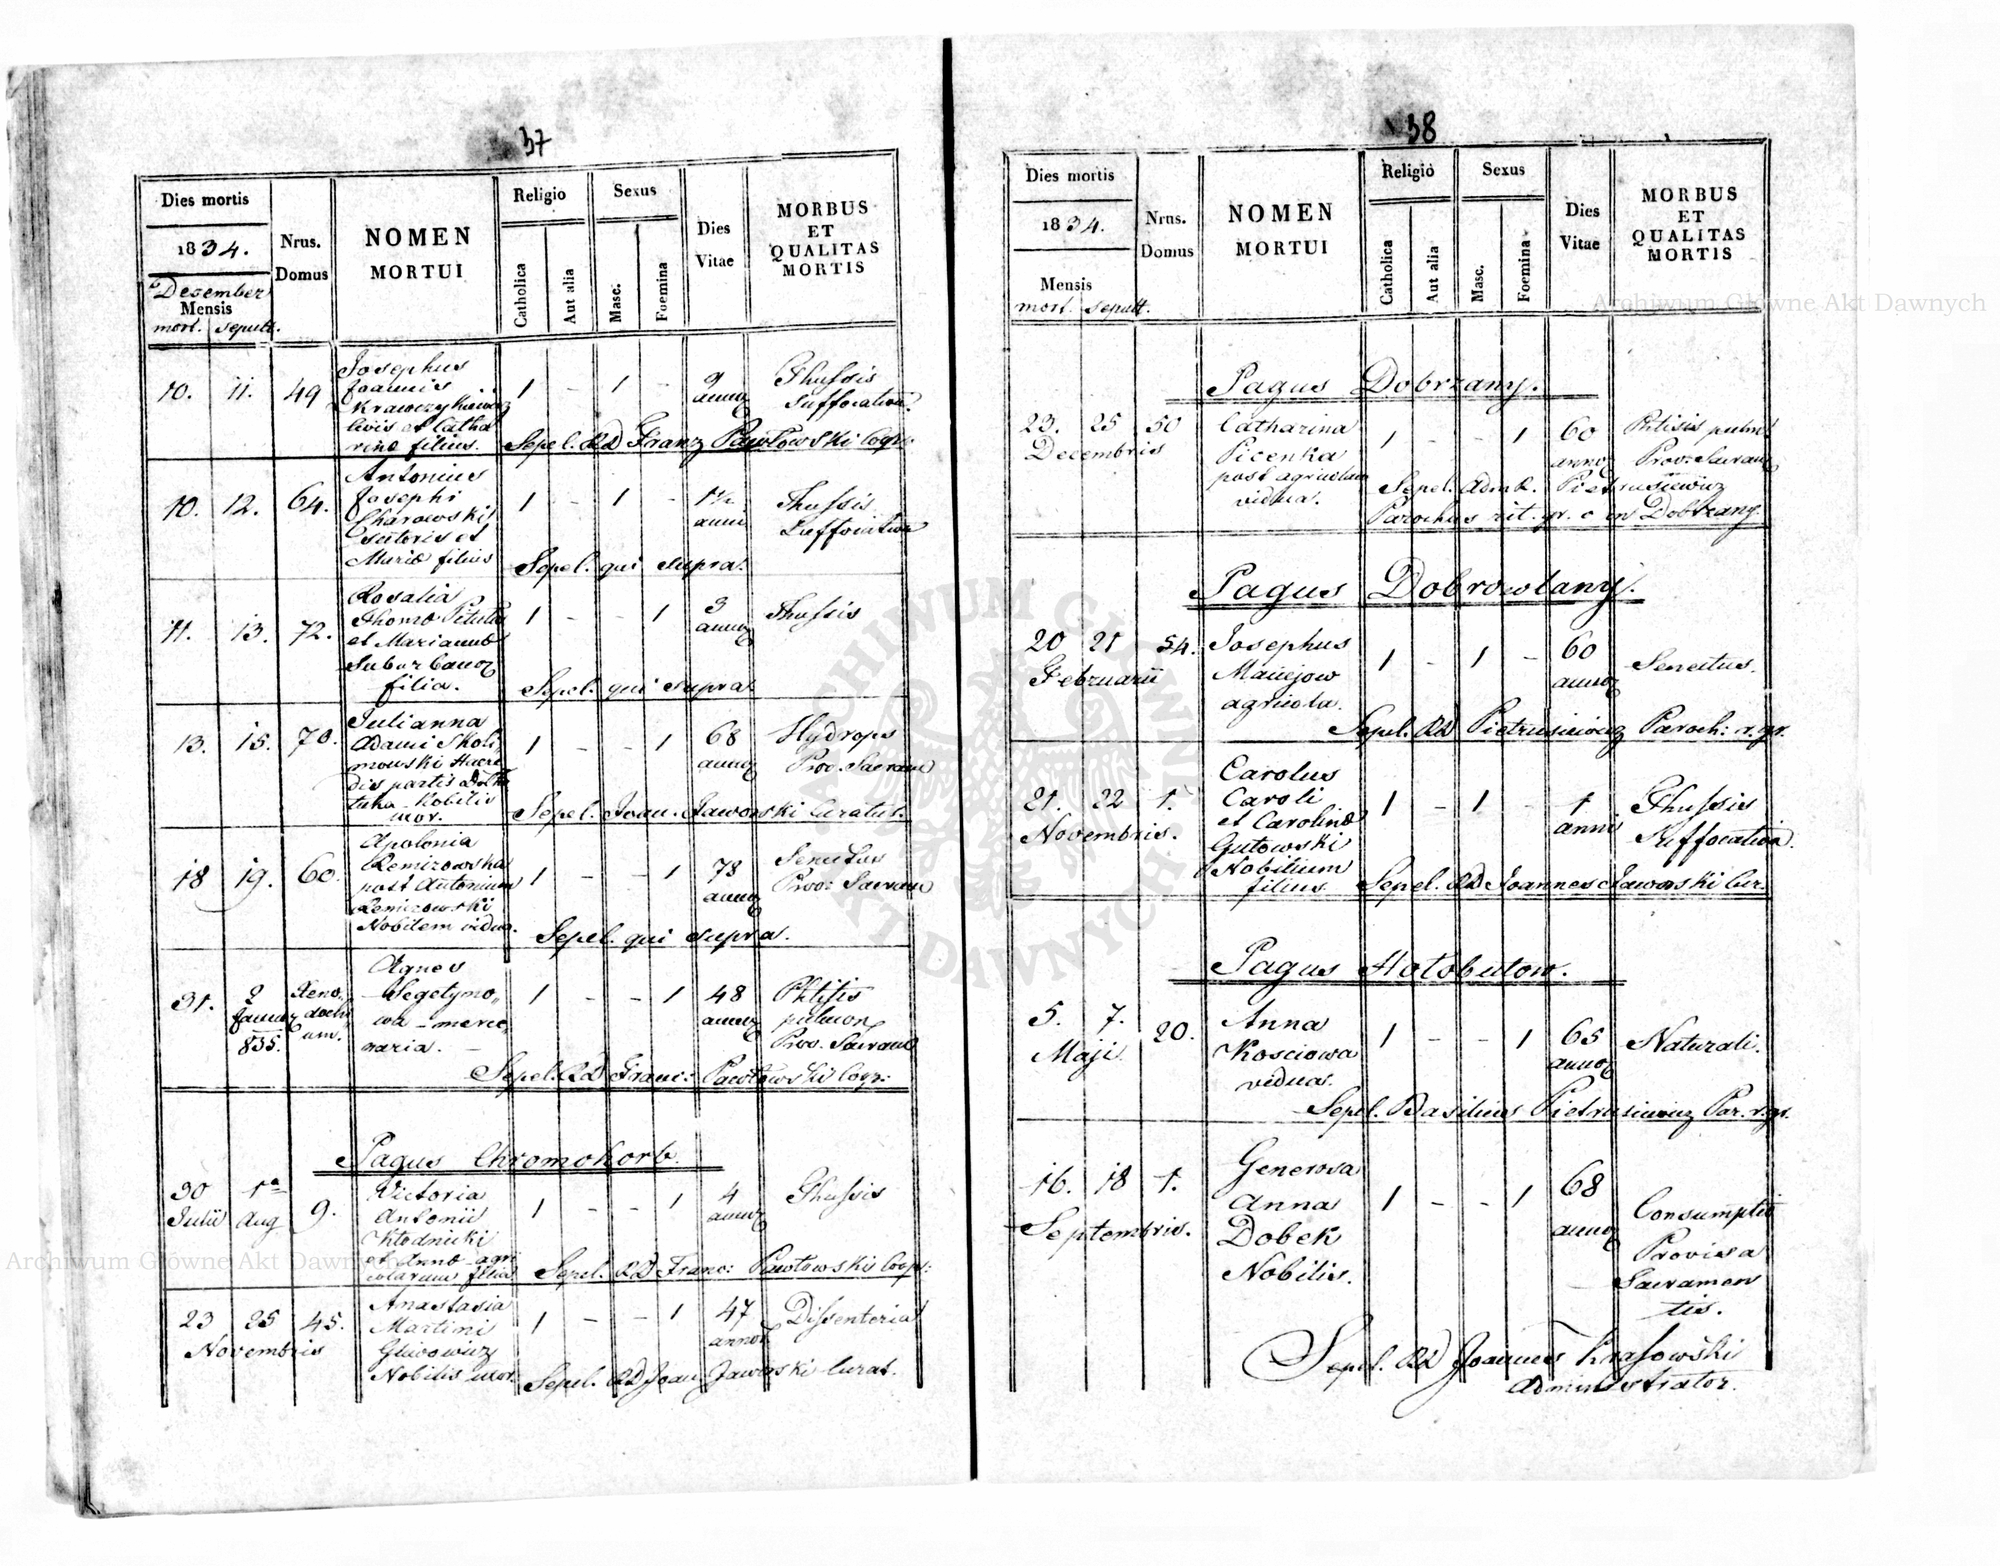 37
Dies mortis
1834.
December
Mensis
mort. sepult.
Nrus.
Domus
NOMEN
MORTUI
Religio
Catholica
Aut alia
Sexus
Masc.
Foemina
Dies
Vitae
MORBUS
ET
QUALITAS
MORTIS
10. 11. 49
Josephus
Joannis
civis et Catha
rinæ filius.
1 - 1 -
9
annoꝝ
Thussis
Suffocativa.
Sepel. RD Franz Pawłowski Coop:
10. 12. 64.
Antonius
Josephi
Charowski
Sutoris et
Mariæ filius
1 - 1 -
1½
anni
Thussis
Suffocativa
Sepel. qui supra.
11. 13. 72.
Rosalia
Thomæ
et Mariannæ
Suburbanoꝝ
filia.
1 - - 1
3
annoꝝ
Thussis
Sepel. qui supra.
13. 15. 70.
Julianna
Adami Skoli
mowski Hære
dis partis
Nobilis
uxor.
1 - - 1
68
annoꝝ
Hydrops
Prov. Sacram
Sepel. Joan. Jaworski Curatus.
18 19. 60.
Apolonia
Remizowska
post Antonium
Remizowski
Nobilem vidua.
1 - - 1
78
annoꝝ
Senectus
Prov: Sacram
Sepel. qui supra.
31. 2
Januar
835.
Xeno„
dochi
um.
Agnes
Segetyno„
wa - merce
naria. -
1 - - 1
48
annoꝝ
Phtisis
pulmon
Prov. Sacram
Sepel. RD Franc: Pawłowski Coop:
Pagus Chromohorb.
30 1ª 9.
Julii Aug
Victoria
Antonii
Kłodnicki
et Annæ agri
colarum filia
1 - - 1
4
annoꝝ
Thussis
Sepel. RD Franc: Pawłowski Coop:
23 25 45.
Novembris
Anastasia
Martini
Nobilis uxor.
1 - - 1
47
annoꝝ
Dissenteria
Sepel. RD Joan Jaworski Curat.
38
Dies mortis
1834.
Mensis
mort. sepult.
Nrus.
Domus
NOMEN
MORTUI
Religio
Catholica
Aut alia
Sexus
Masc.
Foemina
Dies
Vitae
MORBUS
ET
QUALITAS
MORTIS
Pagus Dobrzany.
23. 25 50
Decembris
Catharina
Picenka
post agricolam
vidua.
1 - - 1
60
annoꝝ
Phtisis pulm:
Prov. Sacram
Sepel. Pietrusiewicz
Parochus rit. gr. c in Dobrzany
Pagus Dobrowlany.
20 21 54.
Februarii
Josephus
Maciejow
agricola.
1 - 1 -
60
annoꝝ
Senectus.
Sepel. RD Pietrusiewicz Paroch: r.gr.
21. 22 1.
Novembris.
Carolus
Caroli
et Carolinæ
Gutowski
Nobilium
filius.
1 - 1 -
1
anni
Thussis
Suffocativa.
Sepel. RD Joannes Jaworski Cur.
Pagus Hołobutow.
5. 7. 20.
Maji
Anna
Kosciowa
vidua.
1 - - 1
65
annoꝝ
Naturali.
Sepel. Basilius Pietrusiewicz Par. r.gr.
16. 18 1.
Septembris.
Generosa
Anna
Dobek
Nobilis.
1 - - 1
68
annoꝝ
Consumptio
Provisa
Sacramen
tis.
Sepel. RD Joannes Krasowski
Administrator.
Archiwum Główne Akt Dawnych
Archiwum Główne Akt Dawnych
ARCHIWUM GŁÓWNE AKT DAWNYCH